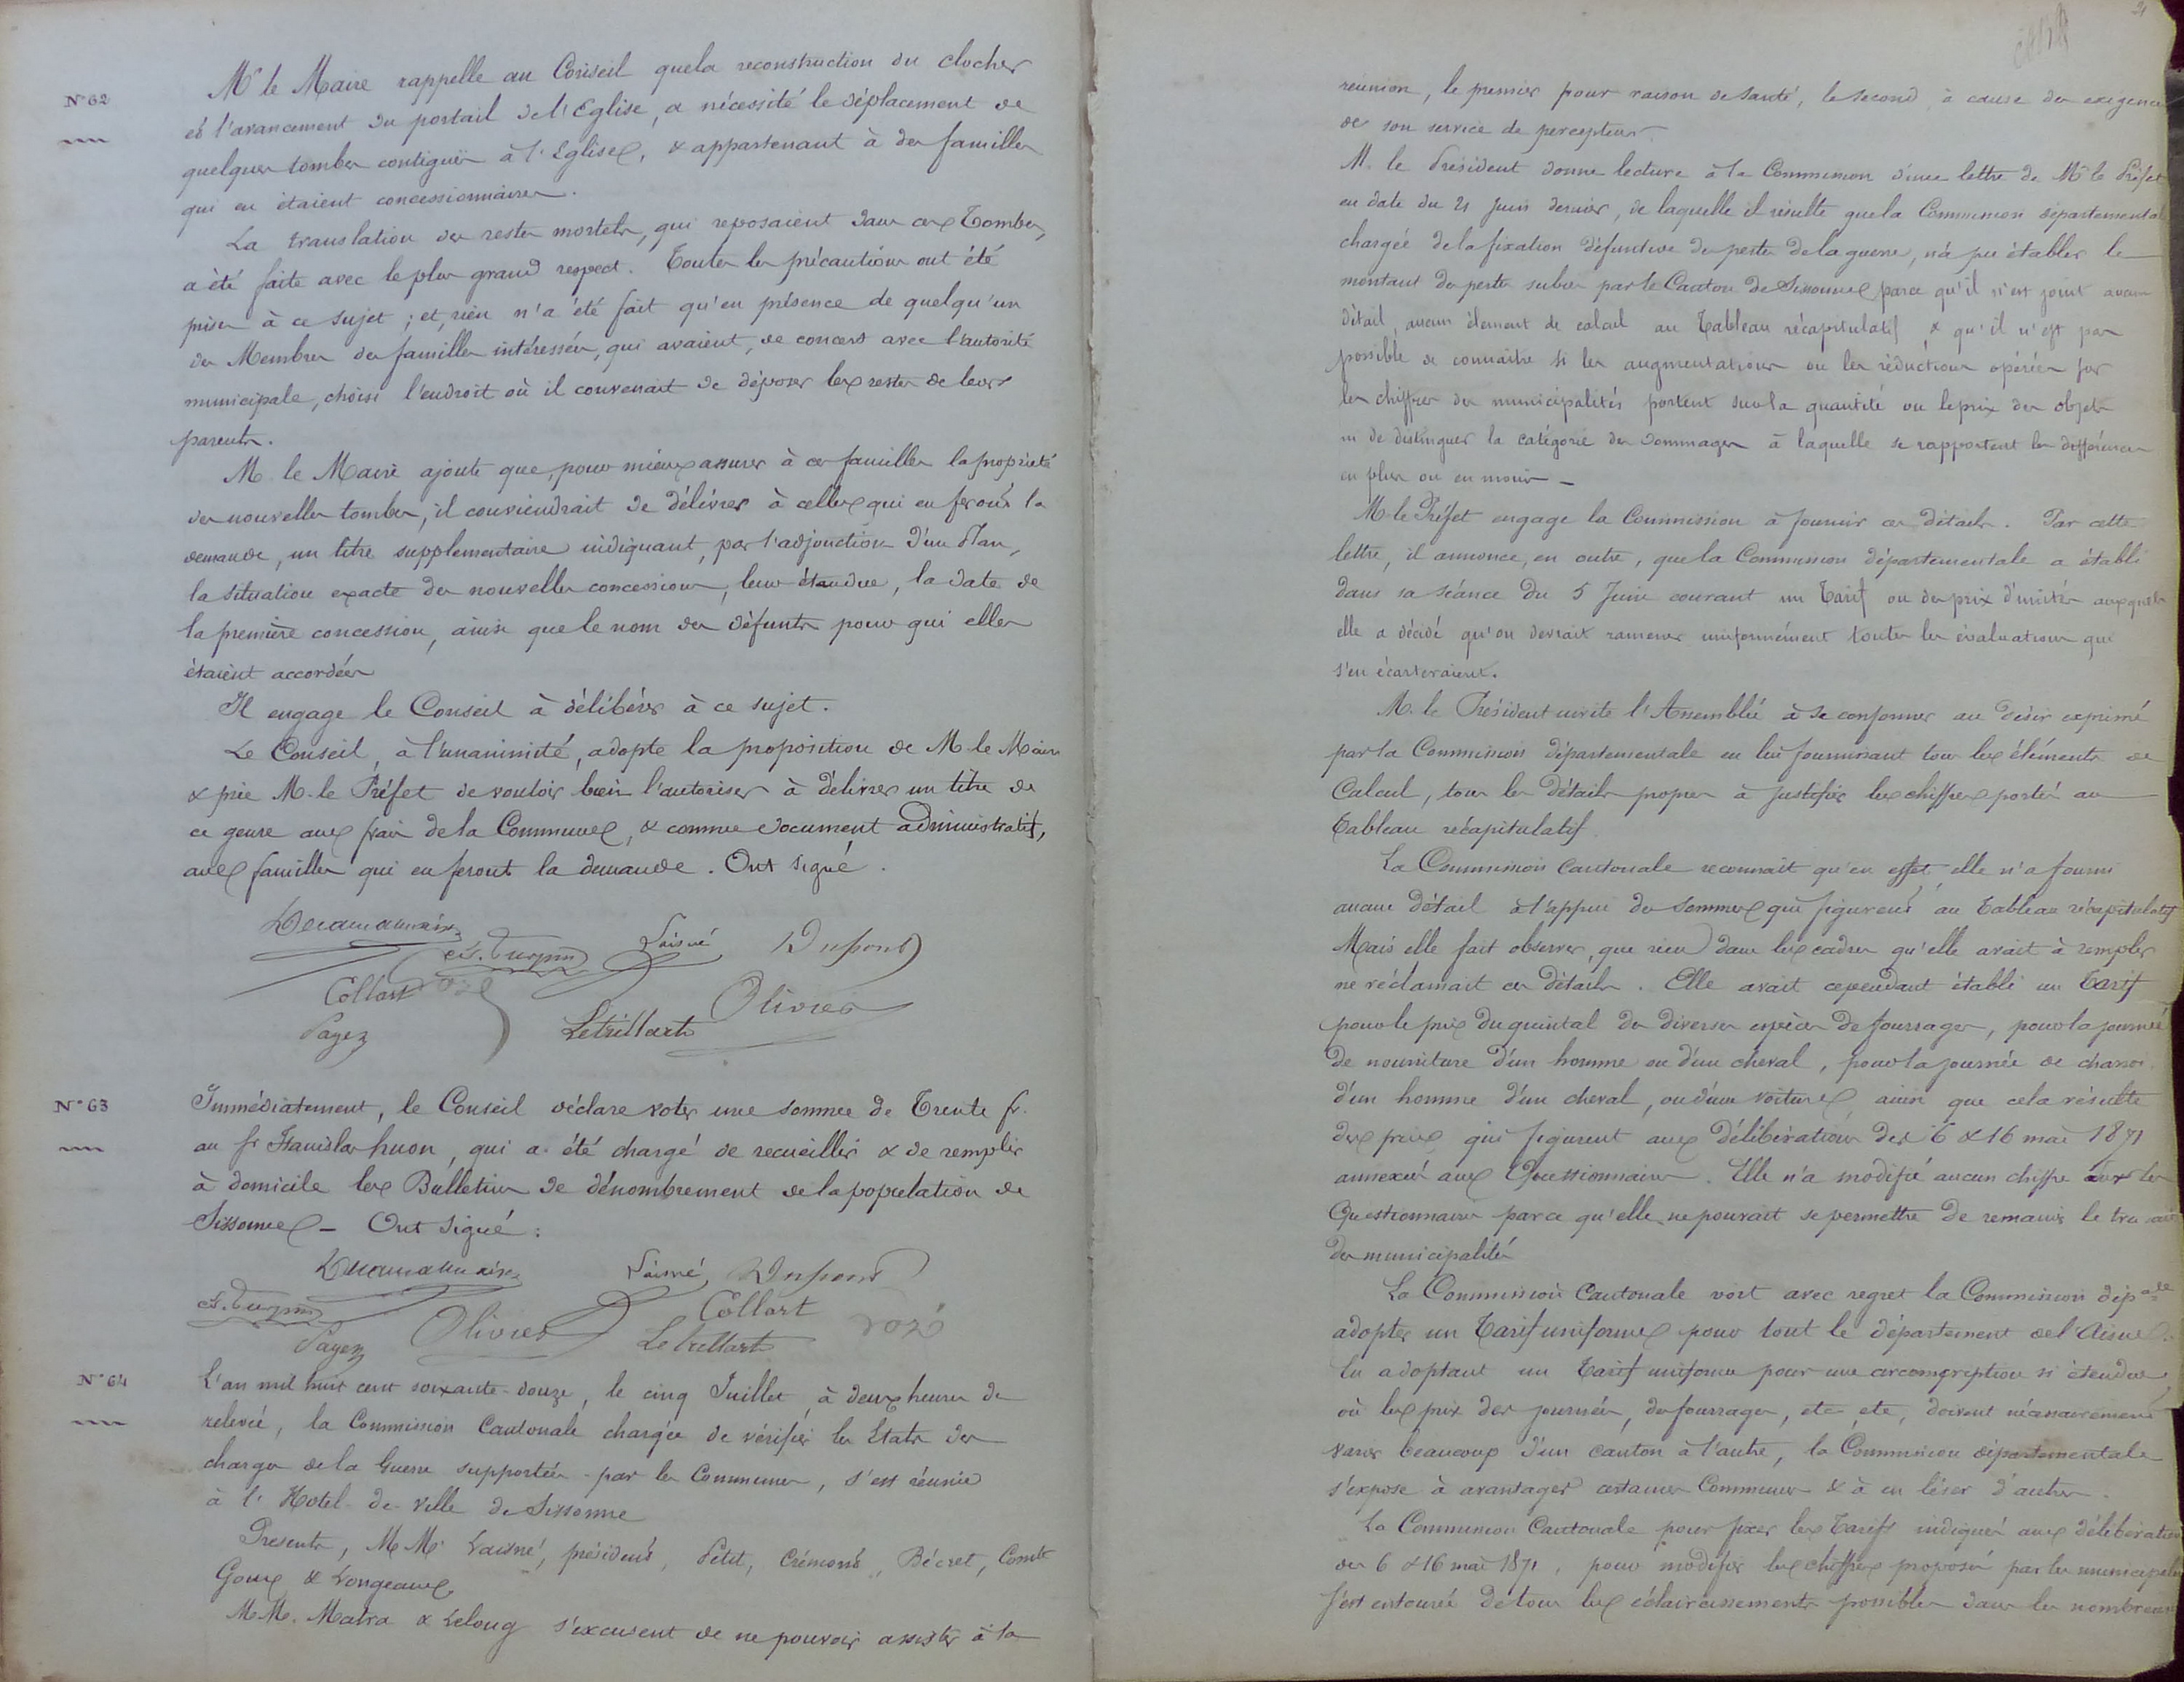 N° 62
Mr le Maire rappelle au Conseil que la reconstruction du clocher
et l'avancement du portail de l'Eglise, a nécessité le déplacement de
quelques tombes contiguës à l'Eglise, & appartenant à des familles
qui en étaient concessionnaires.
La translation des restes mortels, qui reposaient dans ces Tombes,
a été faite avec le plus grand respect. Toutes les précautions ont été
prises à ce sujet ; et, rien n'a été fait qu'en présence de quelqu'un
des Membres des familles intéressées, qui avaient, de concert avec l'autorité
municipale, choisi l'endroit où il convenait de déposer les restes de leurs
parents.
M. le Maire ajoute que, pour mieux assurer à ces familles la propriété
des nouvelles tombes, il conviendrait de délivrer à celles qui en feront la
demande, un titre supplémentaire indiquant, par l'adjonction d'un Plan,
la situation exacte des nouvelles concessions, leur étendue, la date de
la première concession, ainsi que le nom des défunts pour qui elles
étaient accordées
Il engage le Conseil à délibérer à ce sujet.
Le Conseil, à l'unanimité, adopte la proposition de M. le Maire
& prie M. le Préfet de vouloir bien l'autoriser à délivrer un titre de
ce genre aux frais de la Commune, & comme document administratif,
aux familles qui en feront la demande. Ont signé.
Turpin Laisné Dupont
Collart Olivier
Payez Letrillart
N° 63
Immédiatement, le Conseil déclare voter une somme de Trente fr.
au sr Stanislas huon, qui a été chargé de recueillir & de remplir
à domicile les Bulletins de dénombrement de la population de
Sissonne – Ont signé :
Laisné Dupont
Turpin Collart
Payez Olivier Letrillart
N° 64
L'an mil huit cent soixante-douze, le cinq Juillet, à deux heures de
relevée, la Commission Cantonale chargée de vérifier les Etats des
charges de la Guerre supportées par les Communes, s'est réunie
à l'Hotel-de-Ville de Sissonne
Présents, MMrs Laisné, président, Petit, Crémont, Bécret, Comte
Goux & Longeaux
MM. Matra & Lelong s'excusent de ne pouvoir assister à la
réunion, le premier pour raison de santé, le second, à cause des exigences
de son service de percepteur.
M. le Président donne lecture à la Commission d'une lettre de Mr le Préfet
en date du 21 Juin dernier, de laquelle il résulte que la Commission départementale
chargée de la fixation définitive des pertes de la guerre, n'a pu établir le
montant des pertes subies par le Canton de Sissonne parce qu'il n'est joint aucun
détail, aucun élément de calcul au Tableau récapitulatif & qu'il n'est pas
possible de connaître si les augmentations ou les réductions opérées sur
les chiffres des municipalités portent sur la quantité ou le prix des objets
ni de distinguer la catégorie des dommages à laquelle se rapportent les différences
en plus ou en moins –
M. le Préfet engage la Commission à fournir ces détails. Par cette
lettre, il annonce, en outre, que la Commission départementale a établi
dans sa séance du 5 Juin courant un Tarif ou des prix d'unités auxquels
elle a décidé qu'on devrait ramener uniformément toutes les évaluations qui
s'en écarteraient.
M. le Président invite l'Assemblée à se conformer au désir exprimé
par la Commission départementale en lui fournissant tous les éléments de
Calcul, tous les détails propres à justifier les chiffres portés au
Tableau récapitulatif.
La Commission Cantonale reconnait qu'en effet, elle n'a fourni
aucun détail à l'appui des sommes qui figurent au Tableau récapitulatif
Mais elle fait observer, que rien dans les cadres qu'elle avait à remplir
ne réclamait ces détails. Elle avait cependant établi un Tarif
pour le prix du quintal des diverses espèces de fourrages, pour la journée
de nourriture d'un homme ou d'un cheval, pour la journée de charroi
d'un homme d'un cheval, ou d'une voiture, ainsi que cela résulte
des prix qui figurent aux délibérations des 6 & 16 mai 1871
annexées aux Questionnaires. Elle n'a modifié aucun chiffre sur les
Questionnaires parce qu'elle ne pouvait se permettre de remanier le travail
des municipalités
La Commission Cantonale voit avec regret la Commission dépale
adopter un Tarif uniforme pour tout le département de l'Aisne.
En adoptant un Tarif uniforme pour une circonscription si étendue
où les prix des journées, des fourrages, etc etc, doivent nécessairement
varier beaucoup d'un canton à l'autre, la Commission départementale
s'expose à avantager certaines Communes & à en léser d'autres.
La Commission Cantonale pour fixer les Tarifs indiqués aux délibérations
des 6 & 16 mai 1871, pour modifier les chiffres proposés par les municipalités
s'est entourée de tous les éclaircissements possibles dans les nombreuses